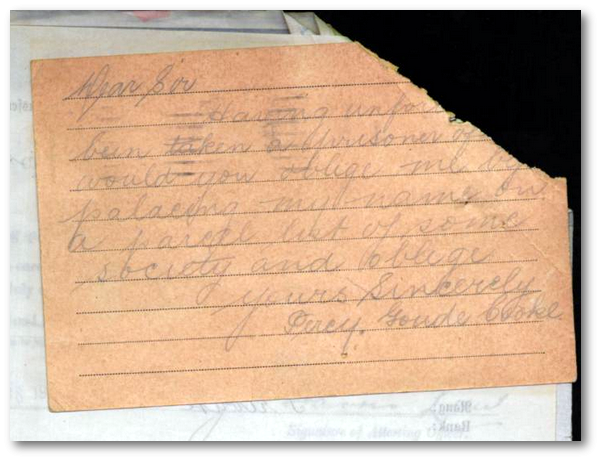 Dear Sir
Having unfor
been taken a Prisoner of
would you oblige me by
palaceing my name on
a parcel list of some
society and oblige
yours Sinkerely
Percy. Goude Cooke
Signature of Attesting Officer